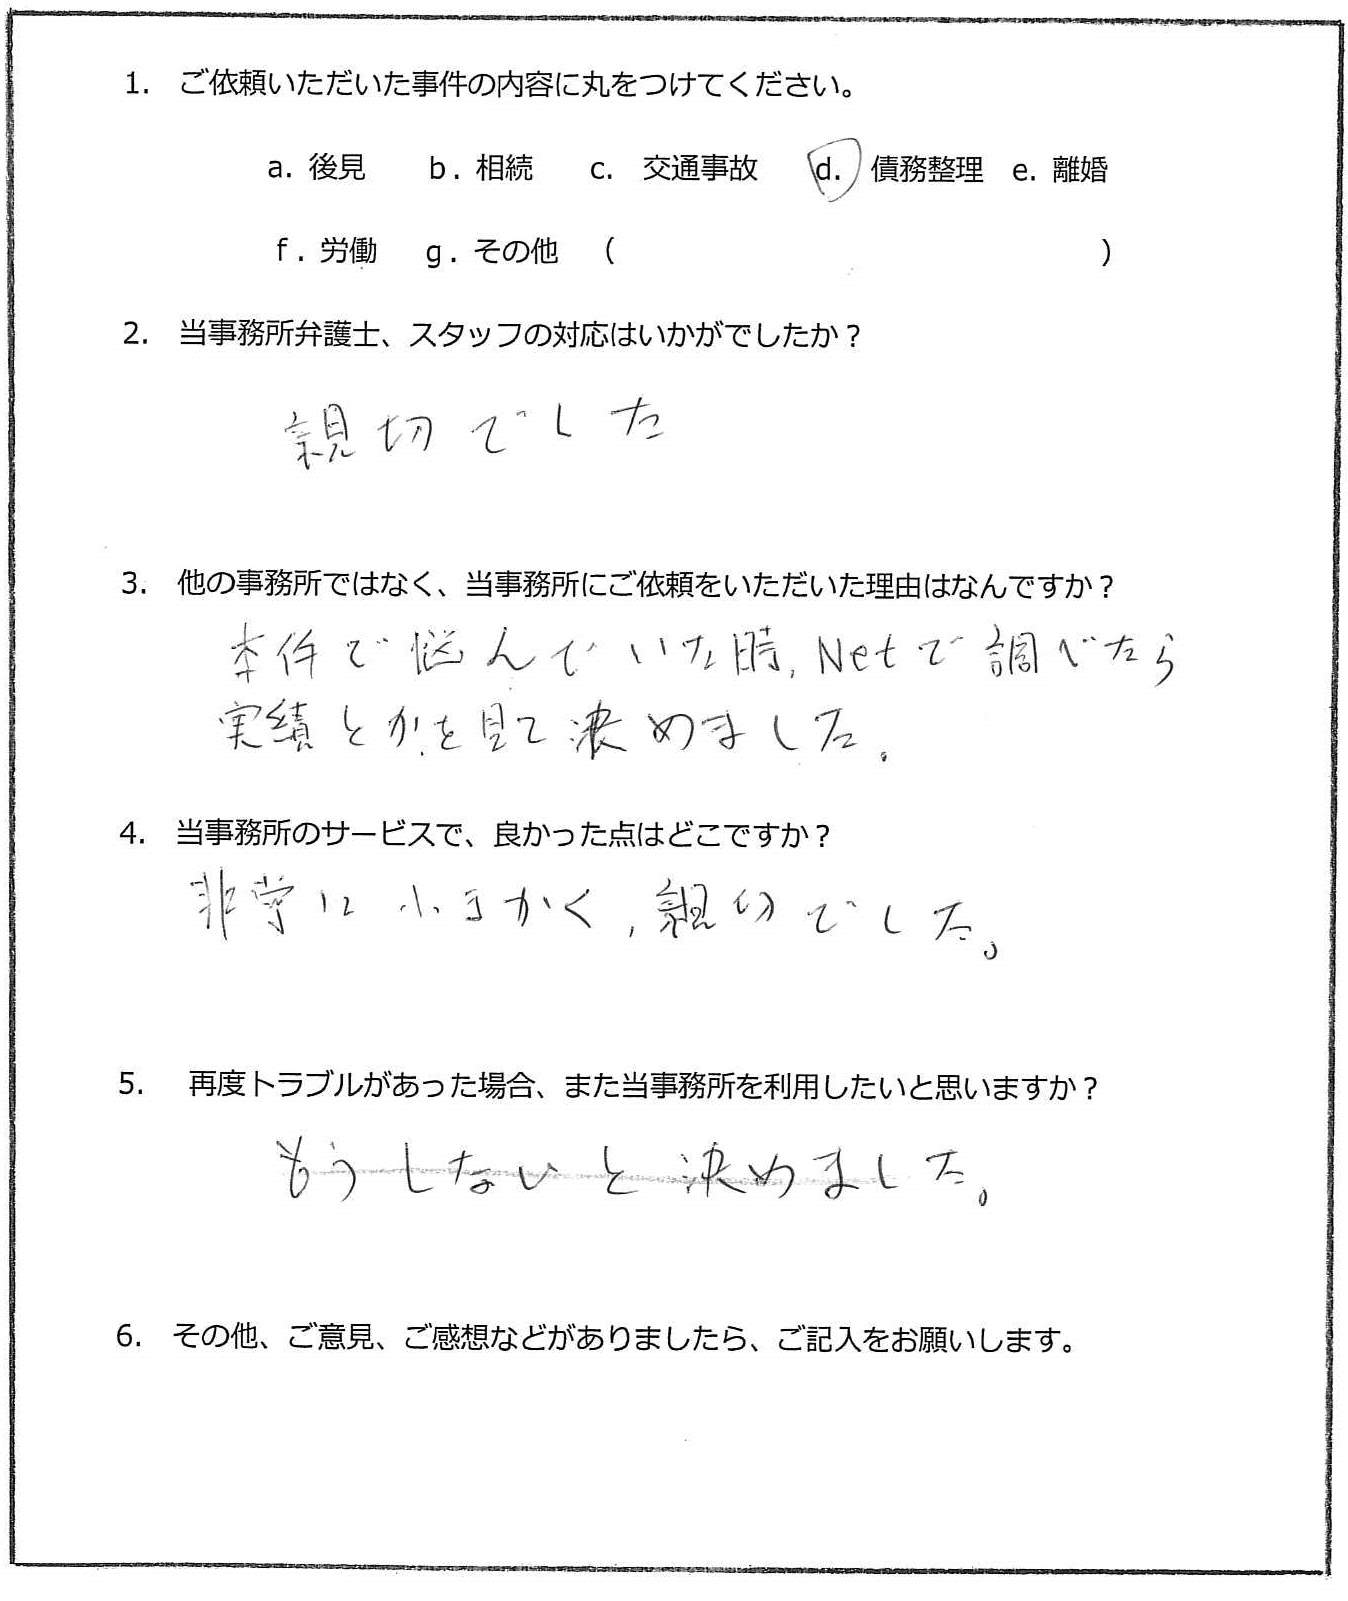 1. ご依頼いただいた事件の内容に丸をつけてください。
a. 後見 b. 相続 c. 交通事故 d. 債務整理 e. 離婚
f. 労働 g. その他 ( )
2. 当事務所弁護士、スタッフの対応はいかがでしたか？
親切でした
3. 他の事務所ではなく、当事務所にご依頼をいただいた理由はなんですか？
本件で悩んでいた時、Netで調べたら
実績とかを見て決めました。
4. 当事務所のサービスで、良かった点はどこですか？
非常に小まかく、親切でした。
5. 再度トラブルがあった場合、また当事務所を利用したいと思いますか？
もうしないと決めました。
6. その他、ご意見、ご感想などがありましたら、ご記入をお願いします。